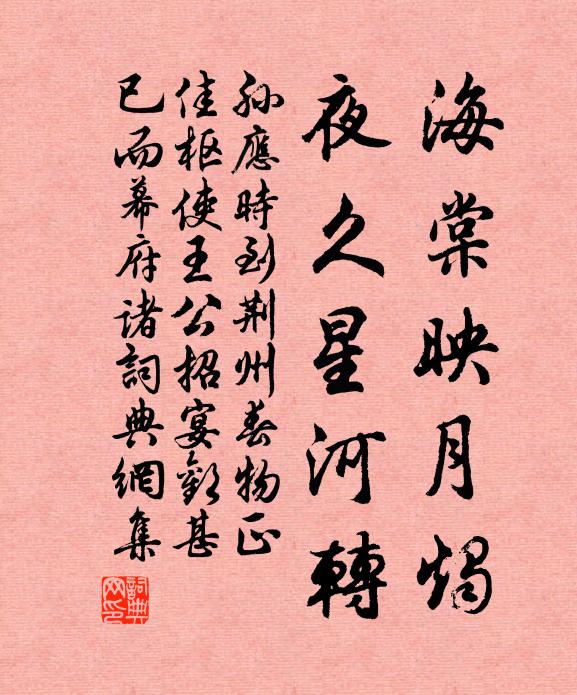 海棠映月燭
夜久星河轉
孫應時到荆州春物正
佳枢使王公招宴歡甚
已而幕府诸詞典網集
詞典网印